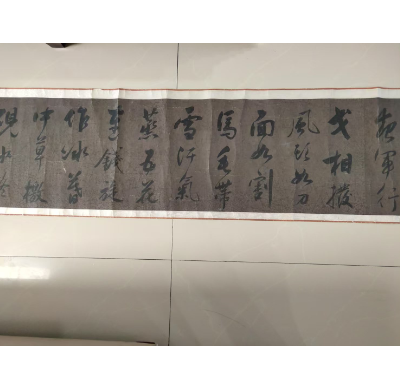 夜軍行
戈相撥
風頭如刀
面如割
馬毛帶
雪汗氣
蒸五花
連錢旋
作冰幕
中草檄
硯水